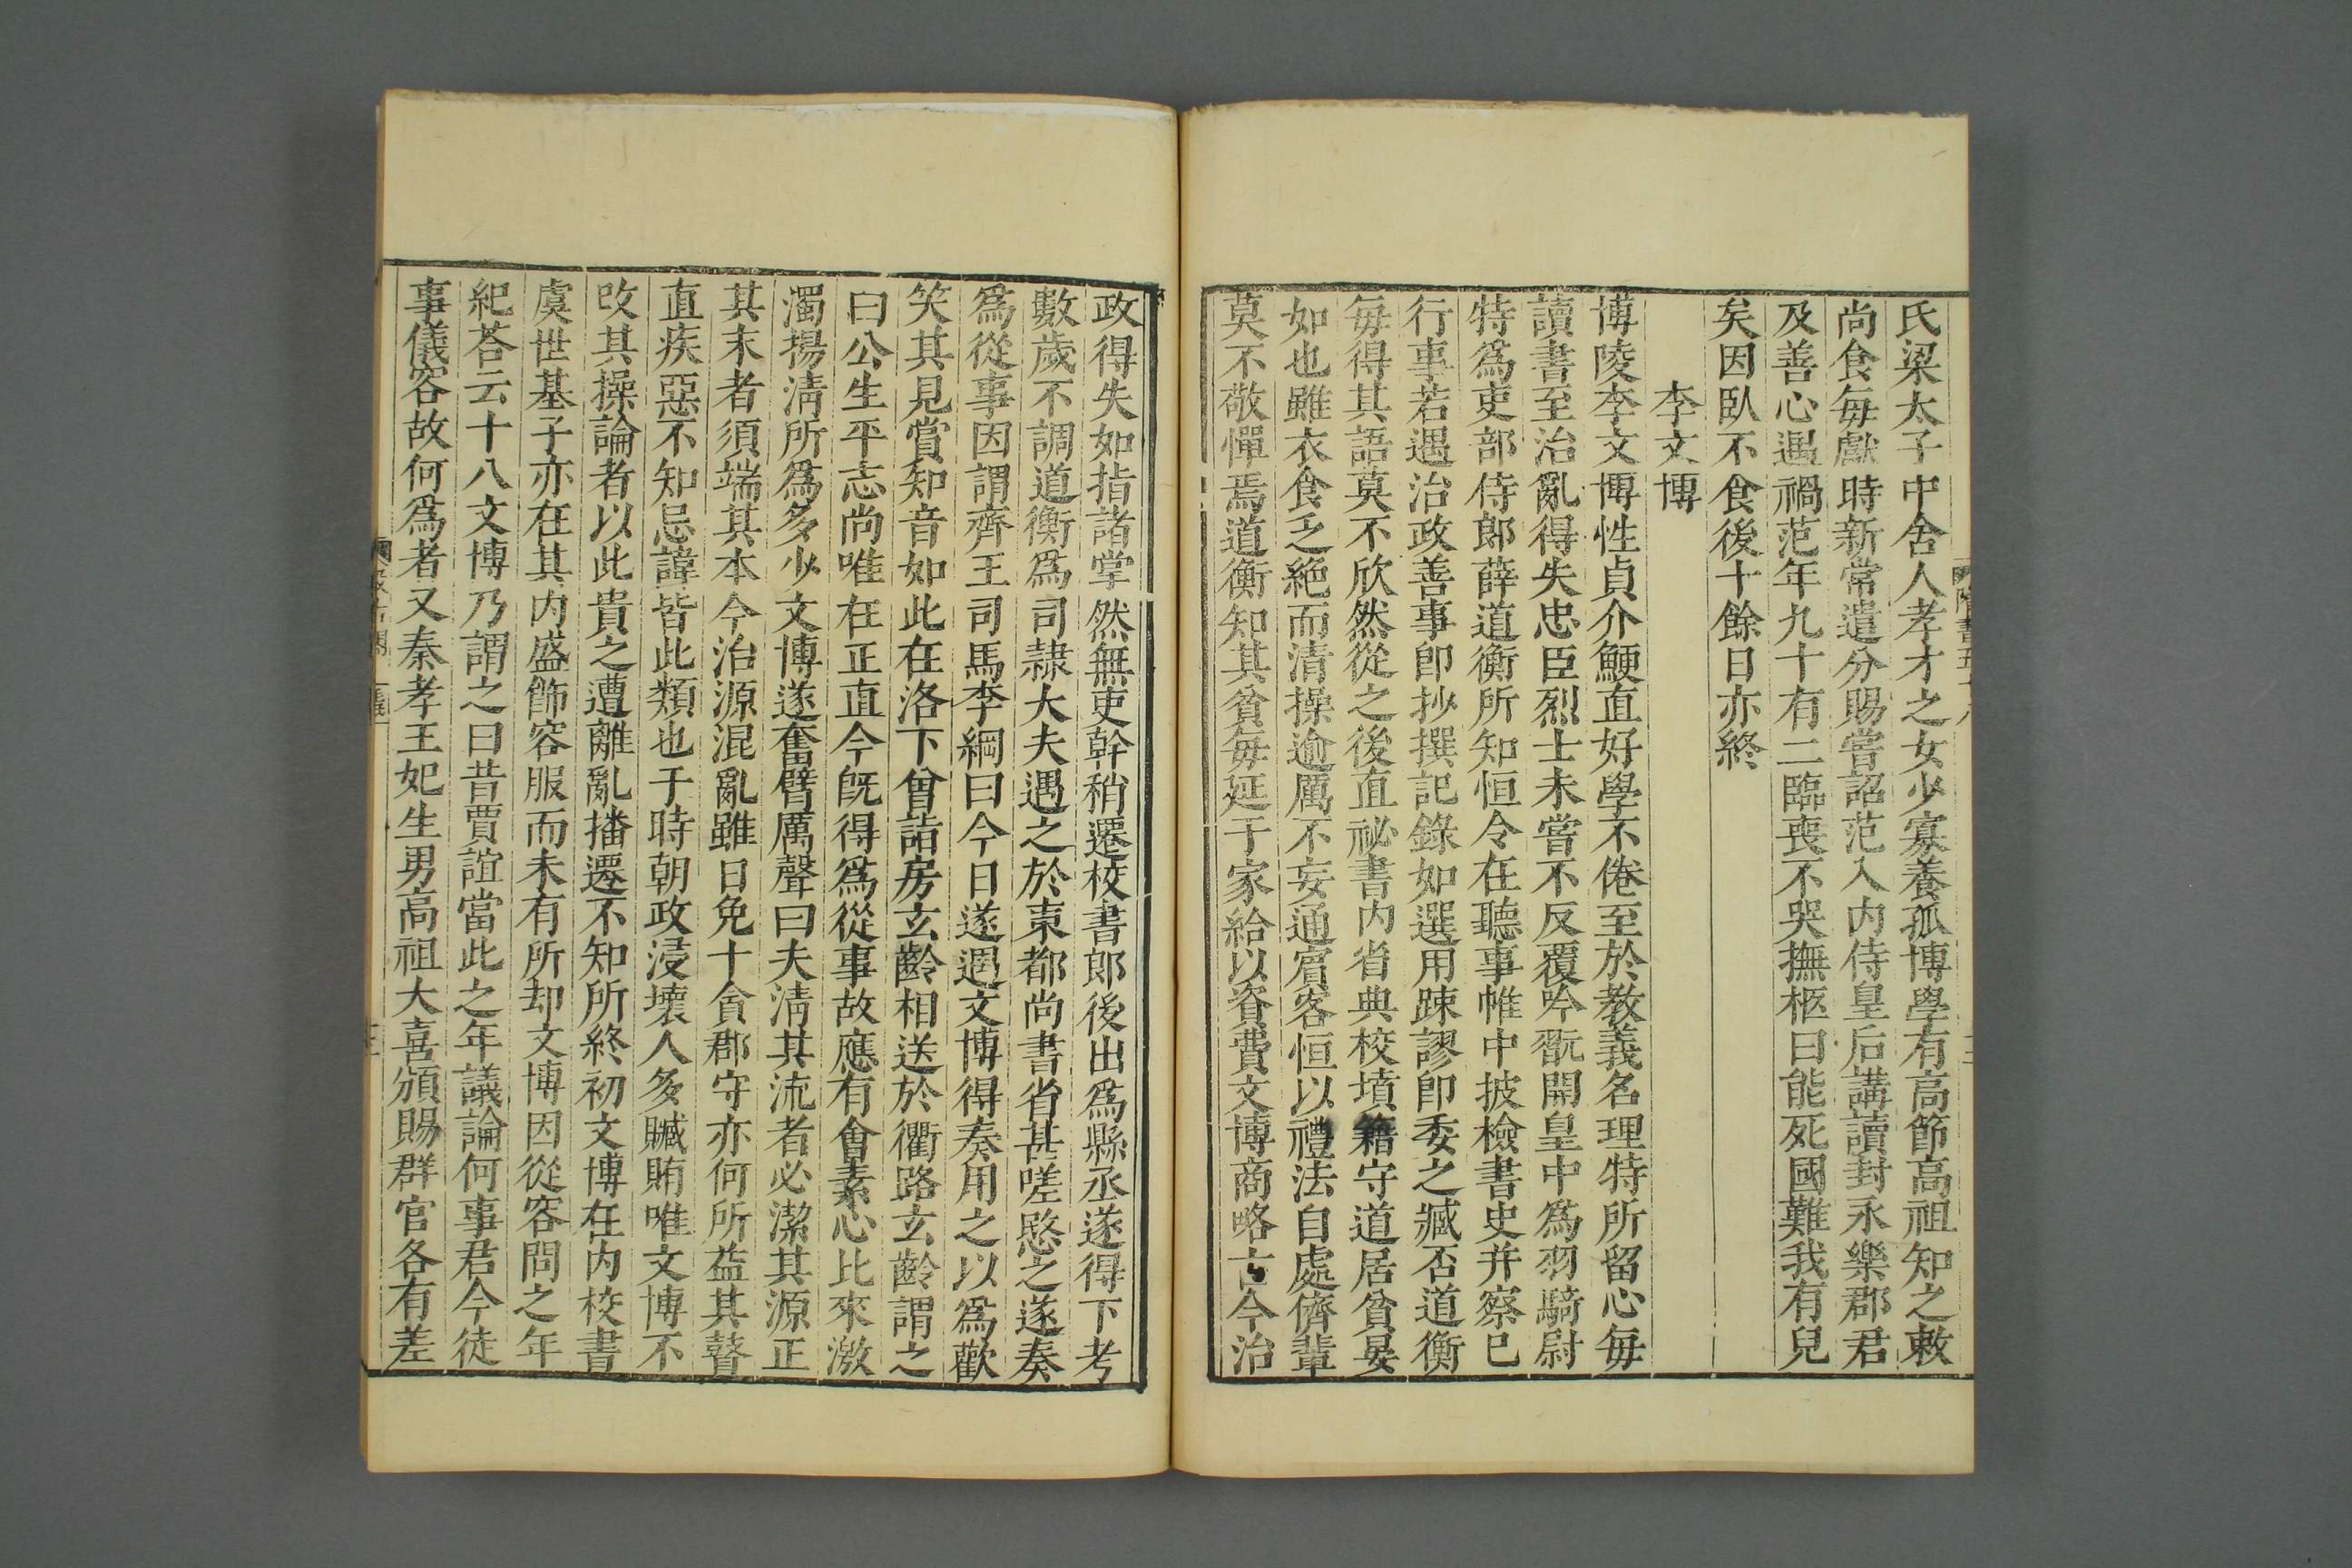 氏梁太子中舍人孝才之女少寡養孤博學有高節高祖知之敕
尚食毎獻時新常遣分賜嘗詔范入内侍皇后講讀封永樂郡君
及善心遇禍范年九十有二臨喪不哭撫柩曰能死國難我有兒
矣因臥不食後十餘日亦終
李文博
博陵李文博性貞介鯁直好學不倦至於教義名理特所留心毎
讀書至治亂得失忠臣烈士未嘗不反覆吟翫開皇中爲羽騎尉
特爲吏部侍郎薛道衡所知恒令在聽事帷中披檢書史并察已
行事若遇治政善事即抄撰記錄如選用踈謬即委之臧否道衡
毎得其語莫不欣然從之後直祕書内省典校墳籍守道居貧晏
如也雖衣食乏絶而清操逾厲不妄通賓客恒以禮法自處儕輩
莫不敬憚焉道衡知其貧毎延于家給以資費文博商略古今治
政得失如指諸掌然無吏幹稍遷校書郎後出爲縣丞遂得下考
數歲不調道衡爲司隷大夫遇之於東都尚書省甚嗟愍之遂奏
爲從事因謂齊王司馬李綱曰今日遂遇文博得奏用之以爲歡
笑其見賞知音如此在洛下曾詣房玄齡相送於衢路玄齡謂之
曰公生平志尚唯在正直今旣得爲從事故應有會素心比來激
濁揚清所爲多少文博遂奮臂厲聲曰夫清其流者必潔其源正
其末者須端其本今治源混亂雖日免十貪郡守亦何所益其瞽
直疾惡不知忌諱皆此類也于時朝政浸壞人多贓賄唯文博不
改其操論者以此貴之遭離亂播遷不知所終初文博在内校書
虞世基子亦在其内盛飾容服而未有所却文博因從容問之年
紀荅云十八文博乃謂之曰昔賈誼當此之年議論何事君今徒
事儀容故何爲者又秦孝王妃生男高祖大喜頒賜群官各有差